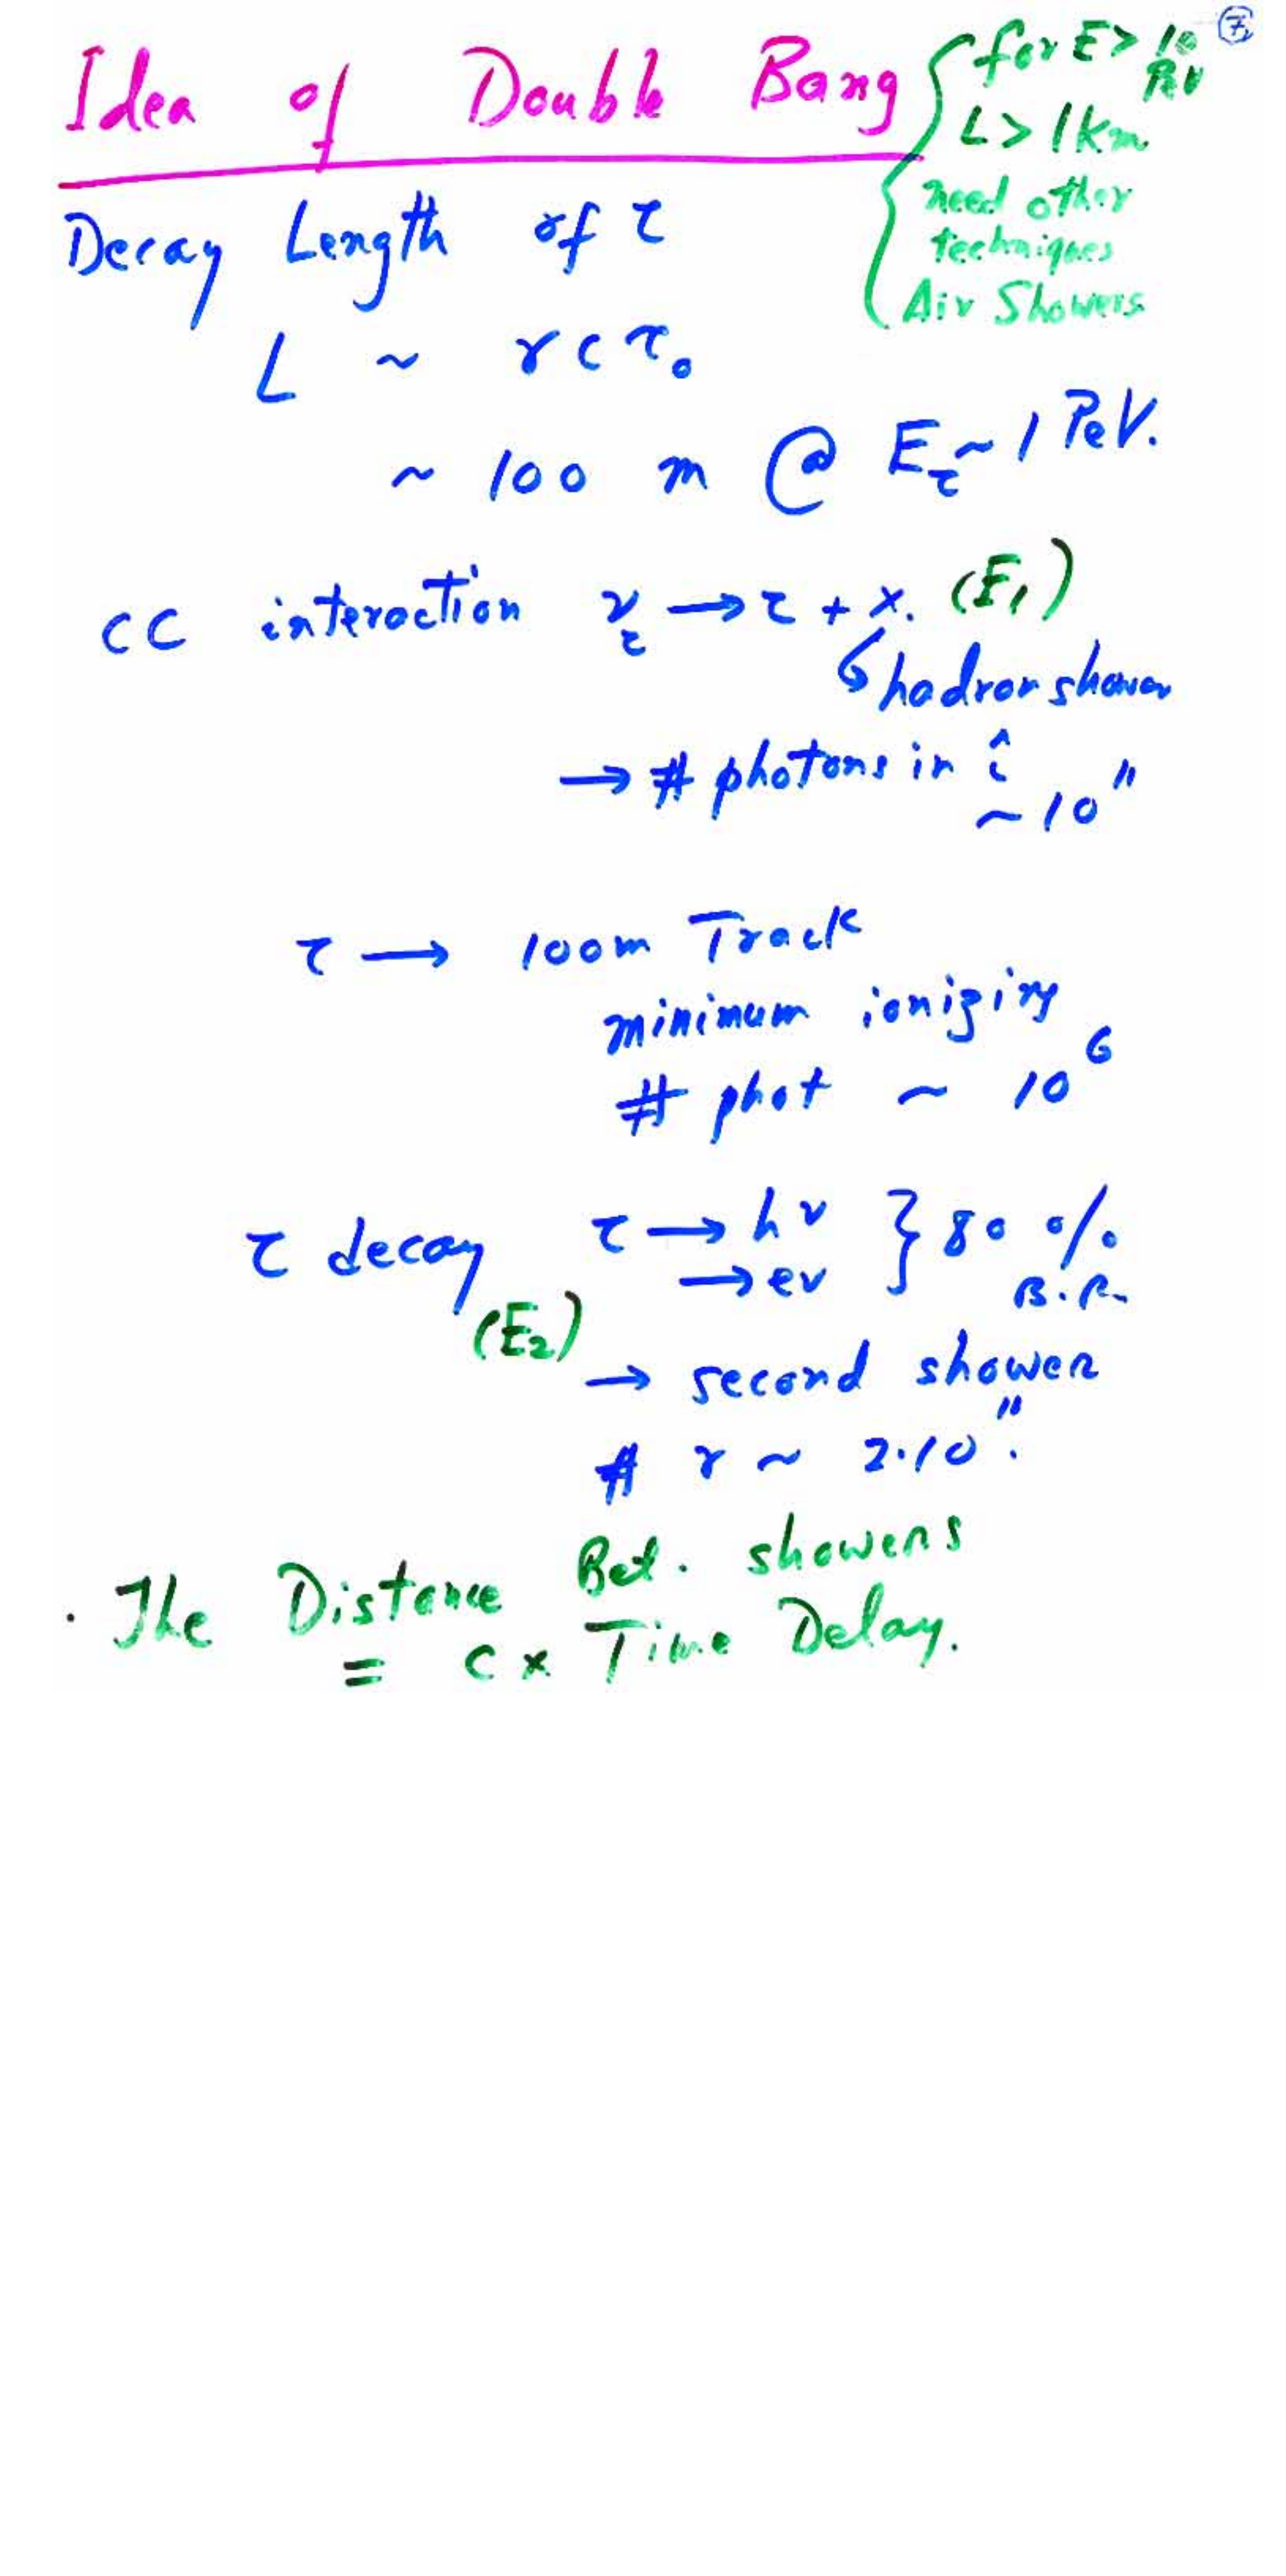 7
Idea of Double Bang
for E > 10 PeV
L > 1 km
need other
techniques
Air Showers
Decay Length of τ
L ~ γ c τ₀
~ 100 m @ E_τ ~ 1 PeV.
CC interaction ν_τ → τ + x. (E₁)
↳ hadron shower
→ # photons in it
~ 10¹¹
τ → 100m Track
minimum ionizing
# phot ~ 10⁶
τ decay τ → hν } 80 %
→ eν B.R.
(E₂)
→ second shower
# γ ~ 2·10¹¹.
. The Distance Bet. showers
= C × Time Delay.